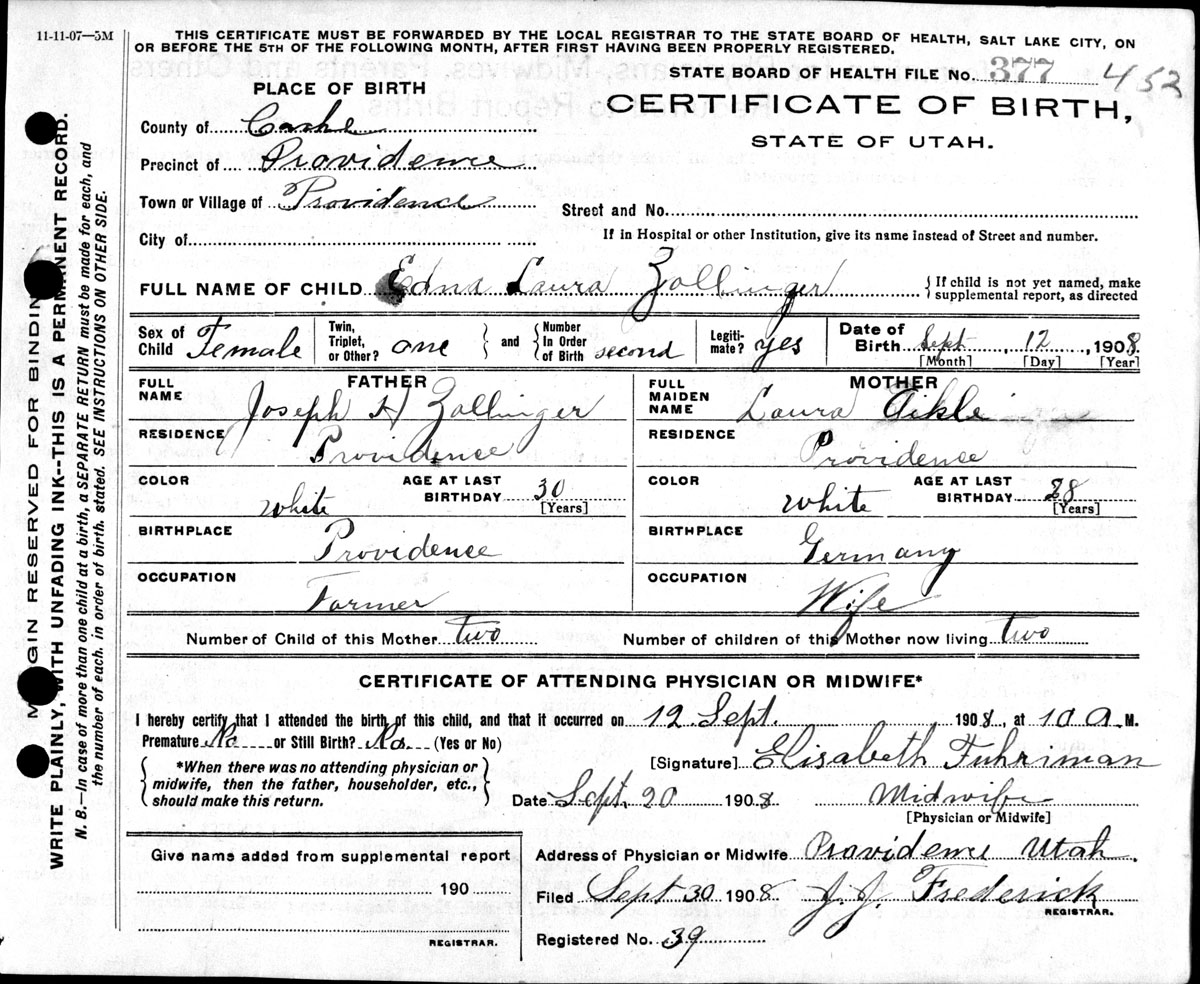 11-11-07—5M
THIS CERTIFICATE MUST BE FORWARDED BY THE LOCAL REGISTRAR TO THE STATE BOARD OF HEALTH, SALT LAKE CITY, ON
OR BEFORE THE 5TH OF THE FOLLOWING MONTH, AFTER FIRST HAVING BEEN PROPERLY REGISTERED.
STATE BOARD OF HEALTH FILE No. 377 452
PLACE OF BIRTH
CERTIFICATE OF BIRTH,
STATE OF UTAH.
County of Cache
Precinct of Providence
Town or Village of Providence
Street and No.
City of
If in Hospital or other Institution, give its name instead of Street and number.
FULL NAME OF CHILD Edna Laura Zollinger { If child is not yet named, make supplemental report, as directed
Sex of Child Female Twin, Triplet, or Other? one } and { Number In Order of Birth second Legiti-mate? yes Date of Birth Sept 12, 1908.
[Month] [Day] [Year]
FATHER
FULL NAME Joseph H Zollinger
RESIDENCE Providence
COLOR White AGE AT LAST BIRTHDAY 30 [Years]
BIRTHPLACE Providence
OCCUPATION Farmer
MOTHER
FULL MAIDEN NAME Laura Aikle
RESIDENCE Providence
COLOR White AGE AT LAST BIRTHDAY 28 [Years]
BIRTHPLACE Germany
OCCUPATION Wife
Number of Child of this Mother two Number of children of this Mother now living two
CERTIFICATE OF ATTENDING PHYSICIAN OR MIDWIFE*
I hereby certify that I attended the birth of this child, and that it occurred on 12 Sept. 1908, at 10 A M.
Premature No or Still Birth? No. (Yes or No)
*When there was no attending physician or midwife, then the father, householder, etc., should make this return.
[Signature] Elisabeth Fuhriman
Date Sept. 20 1908 Midwife
[Physician or Midwife]
Give name added from supplemental report
190
REGISTRAR.
Address of Physician or Midwife Providence Utah.
Filed Sept 30 1908 J. J. Frederick
REGISTRAR.
Registered No. 39
MARGIN RESERVED FOR BINDING
WRITE PLAINLY, WITH UNFADING INK--THIS IS A PERMANENT RECORD.
N. B.—In case of more than one child at a birth, a SEPARATE RETURN must be made for each, and
the number of each, in order of birth, stated. SEE INSTRUCTIONS ON OTHER SIDE.